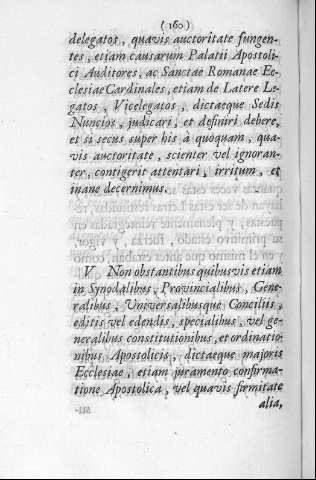 ( 160 )
delegatos, quavis auctoritate fungen-
tes, etiam causarum Palatii Apostoli-
ci Auditores, ac Sanctae Romanae Ec-
clesiae Cardinales, etiam de Latere Le-
gatos, Vicelegatos, dictaeque Sedis
Nuncios, judicari, et definiri debere,
et si secus super his à quoquam, qua-
vis auctoritate, scienter vel ignoran-
ter, contigerit attentari, irritum, et
inane decernimus.
V Non obstantibus quibusvis etiam
in Synodalibus, Provincialibus, Gene-
ralibus, Universalibusque Conciliis,
editis vel edendis, specialibus, vel ge-
neralibus constitutionibus, et ordinatio
nibus Apostolicis, dictaeque majoris
Ecclesiae, etiam juramento confirma-
tione Apostolica, vel quavis firmitate
alia,